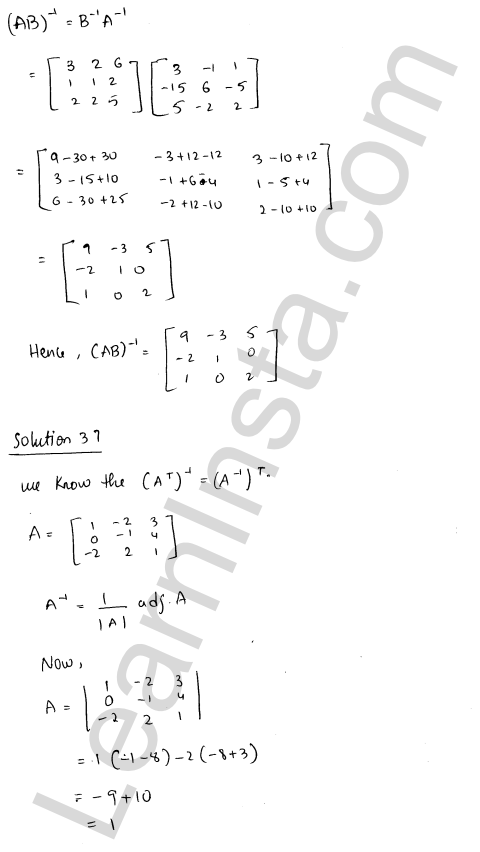 (AB)⁻¹ = B⁻¹A⁻¹
= [3 2 6] [3 -1 1]
[1 1 2] [-15 6 -5]
[2 2 5] [5 -2 2]
= [9-30+30 -3+12-12 3-10+12]
[3-15+10 -1+6-4 1-5+4]
[6-30+25 -2+12-10 2-10+10]
= [9 -3 5]
[-2 1 0]
[1 0 2]
Hence, (AB)⁻¹ = [9 -3 5]
[-2 1 0]
[1 0 2]
Solution 37
we know the (Aᵀ)⁻¹ = (A⁻¹)ᵀ.
A = [1 -2 3]
[0 -1 4]
[-2 2 1]
A⁻¹ = 1/|A| adj. A
Now,
A = |1 -2 3|
|0 -1 4|
|-2 2 1|
= 1(-1-8)-2(-8+3)
= -9+10
= 1
LearnInsta.com